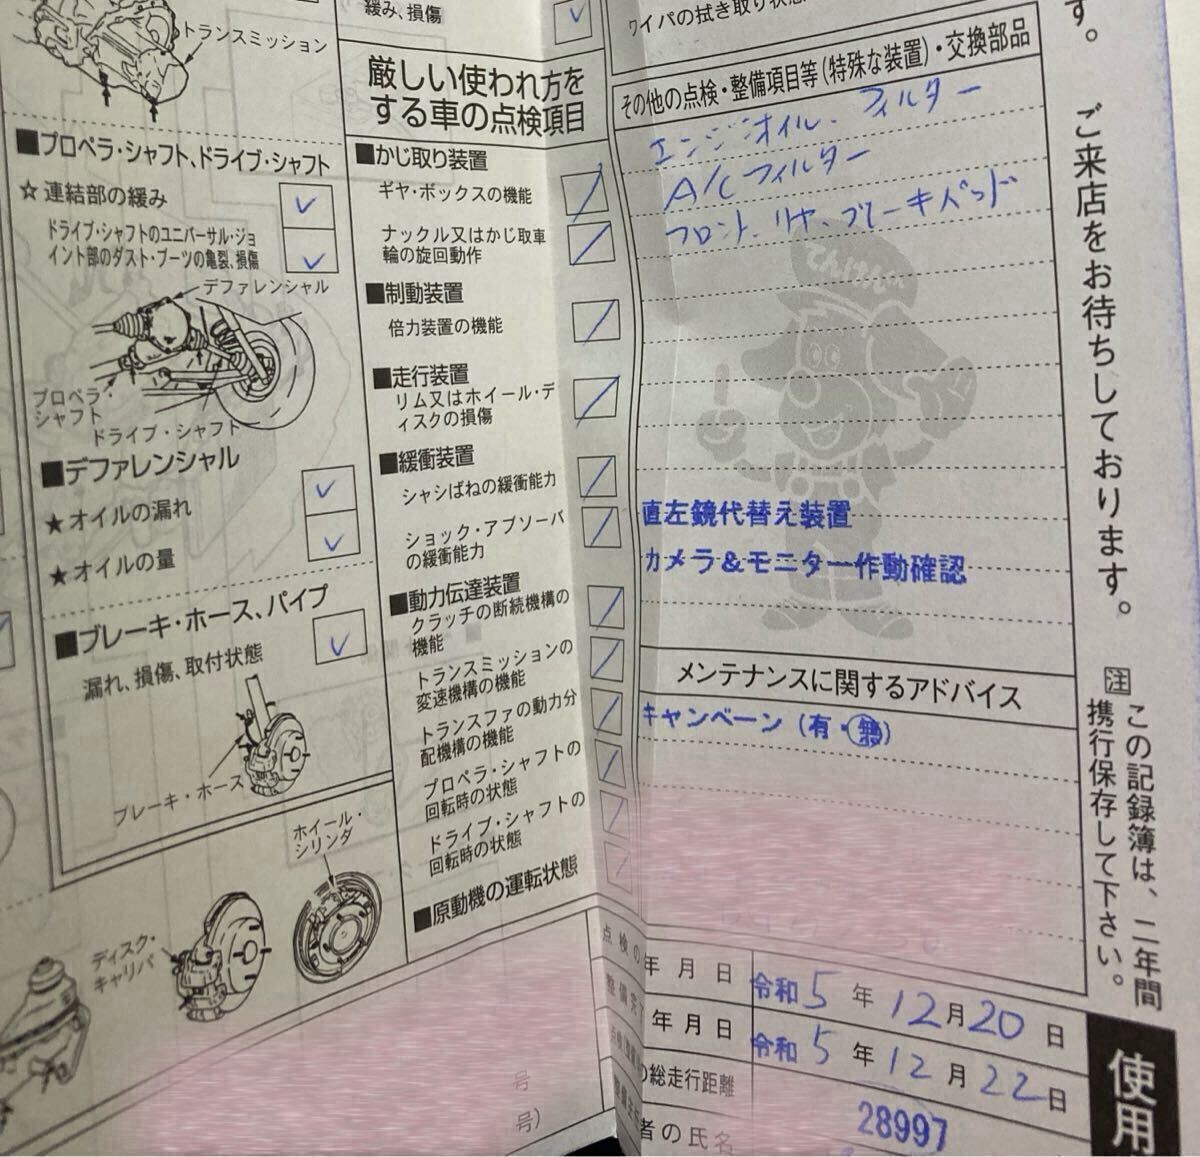 トランスミッション
■プロペラ・シャフト、ドライブ・シャフト
☆連結部の緩み
ドライブ・シャフトのユニバーサル・ジョ
イント部のダスト・ブーツの亀裂、損傷
デファレンシャル
プロペラ・
シャフト
ドライブ・シャフト
■デファレンシャル
★オイルの漏れ
★オイルの量
■ブレーキ・ホース、パイプ
漏れ、損傷、取付状態
ブレーキ・ホース
ホイール・
シリンダ
ディスク・
キャリパ
緩み、損傷
厳しい使われ方を
する車の点検項目
■かじ取り装置
ギヤ・ボックスの機能
ナックル又はかじ取車
輪の旋回動作
■制動装置
倍力装置の機能
■走行装置
リム又はホイール・デ
ィスクの損傷
■緩衝装置
シャシばねの緩衝能力
ショック・アブソーバ
の緩衝能力
■動力伝達装置
クラッチの断続機構の
機能
トランスミッションの
変速機構の機能
トランスファの動力分
配機構の機能
プロペラ・シャフトの
回転時の状態
ドライブ・シャフトの
回転時の状態
■原動機の運転状態
号
号)
ワイパの拭き取り状態
その他の点検・整備項目等(特殊な装置)・交換部品
エンジンオイル、フィルター
A/Cフィルター
フロント、リヤ、ブレーキパッド
てんけんくん
直左鏡代替え装置
カメラ&モニター作動確認
メンテナンスに関するアドバイス
キャンペーン(有・無)
点検の
年月日 令和5年12月20日
整備完
年月日 令和5年12月22日
の総走行距離 28997
者の氏名
す。ご来店をお待ちしております。
注 この記録簿は、二年間
携行保存して下さい。
使用